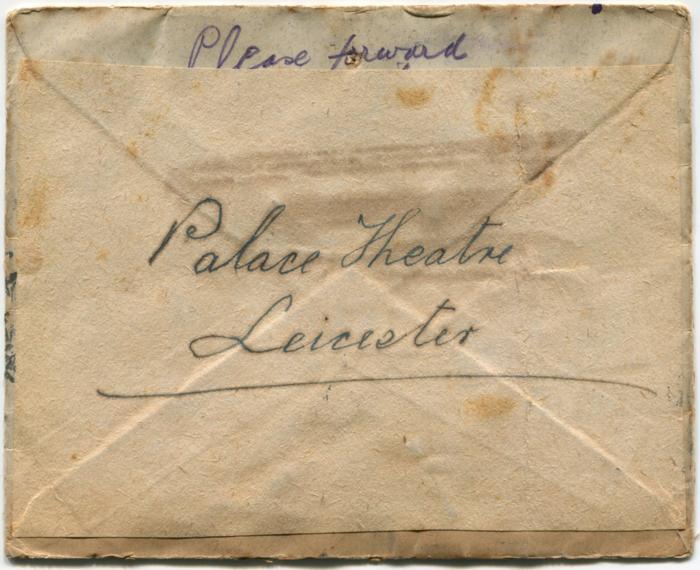 Please forward
Palace Theatre
Leicester